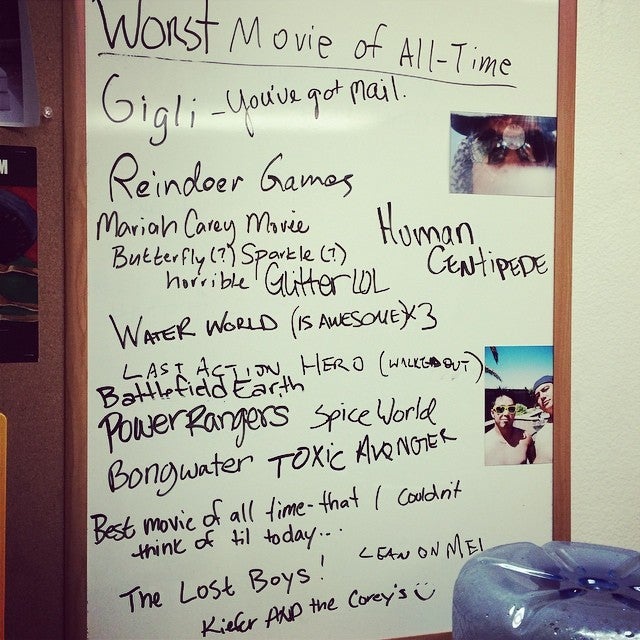 Worst Movie of All-Time
Gigli - You've got Mail.
Reindeer Games
Mariah Carey Movie
Butterfly(?) Sparkle(?)
horrible Glitter LOL
Human
CENTIPEDE
WATER WORLD (IS AWESOME)x3
LAST ACTION HERO (WALKED OUT)
Battlefield Earth
Power Rangers Spice World
Bongwater TOXIC AVENGER
Best movie of all time - that I couldn't
think of til today...
LEAN ON ME!
The Lost Boys!
Kiefer AND the Corey's
M